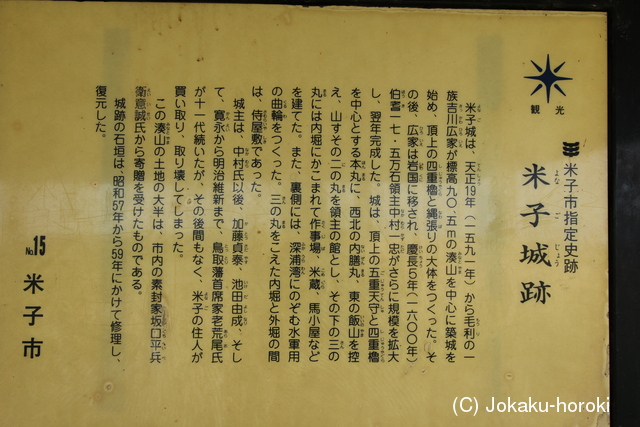 観光
米子市指定史跡
米子城跡
よなごじょう
米子城は、天正19年（一五九一年）から毛利の一
族吉川広家が標高九〇.五mの湊山を中心に築城を
始め、頂上の四重櫓と縄張りの大体をつくった。そ
の後、広家は岩国に移され、慶長5年（一六〇〇年）
伯耆一七・五万石領主中村一忠がさらに規模を拡大
し、翌年完成した。城は、頂上の五重天守と四重櫓
を中心とする本丸に、西北の内膳丸、東の飯山を控
え、山すその二の丸を領主の館とし、その下の三の
丸には内堀にかこまれて作事場、米蔵、馬小屋など
を建てた。また、裏側には、深浦湾にのぞむ水軍用
の曲輪をつくった。三の丸をこえた内堀と外堀の間
は、侍屋敷であった。
城主は、中村氏以後、加藤貞泰、池田由成、そし
て、寛永から明治維新まで、鳥取藩首席家老荒尾氏
が十一代続いたが、その後間もなく、米子の住人が
買い取り、取り壊してしまった。
この湊山の土地の大半は、市内の素封家坂口平兵
衛意誠氏から寄贈を受けたものである。
城跡の石垣は、昭和57年から59年にかけて修理し、
復元した。
No.15
米子市
(C) Jokaku-horoki